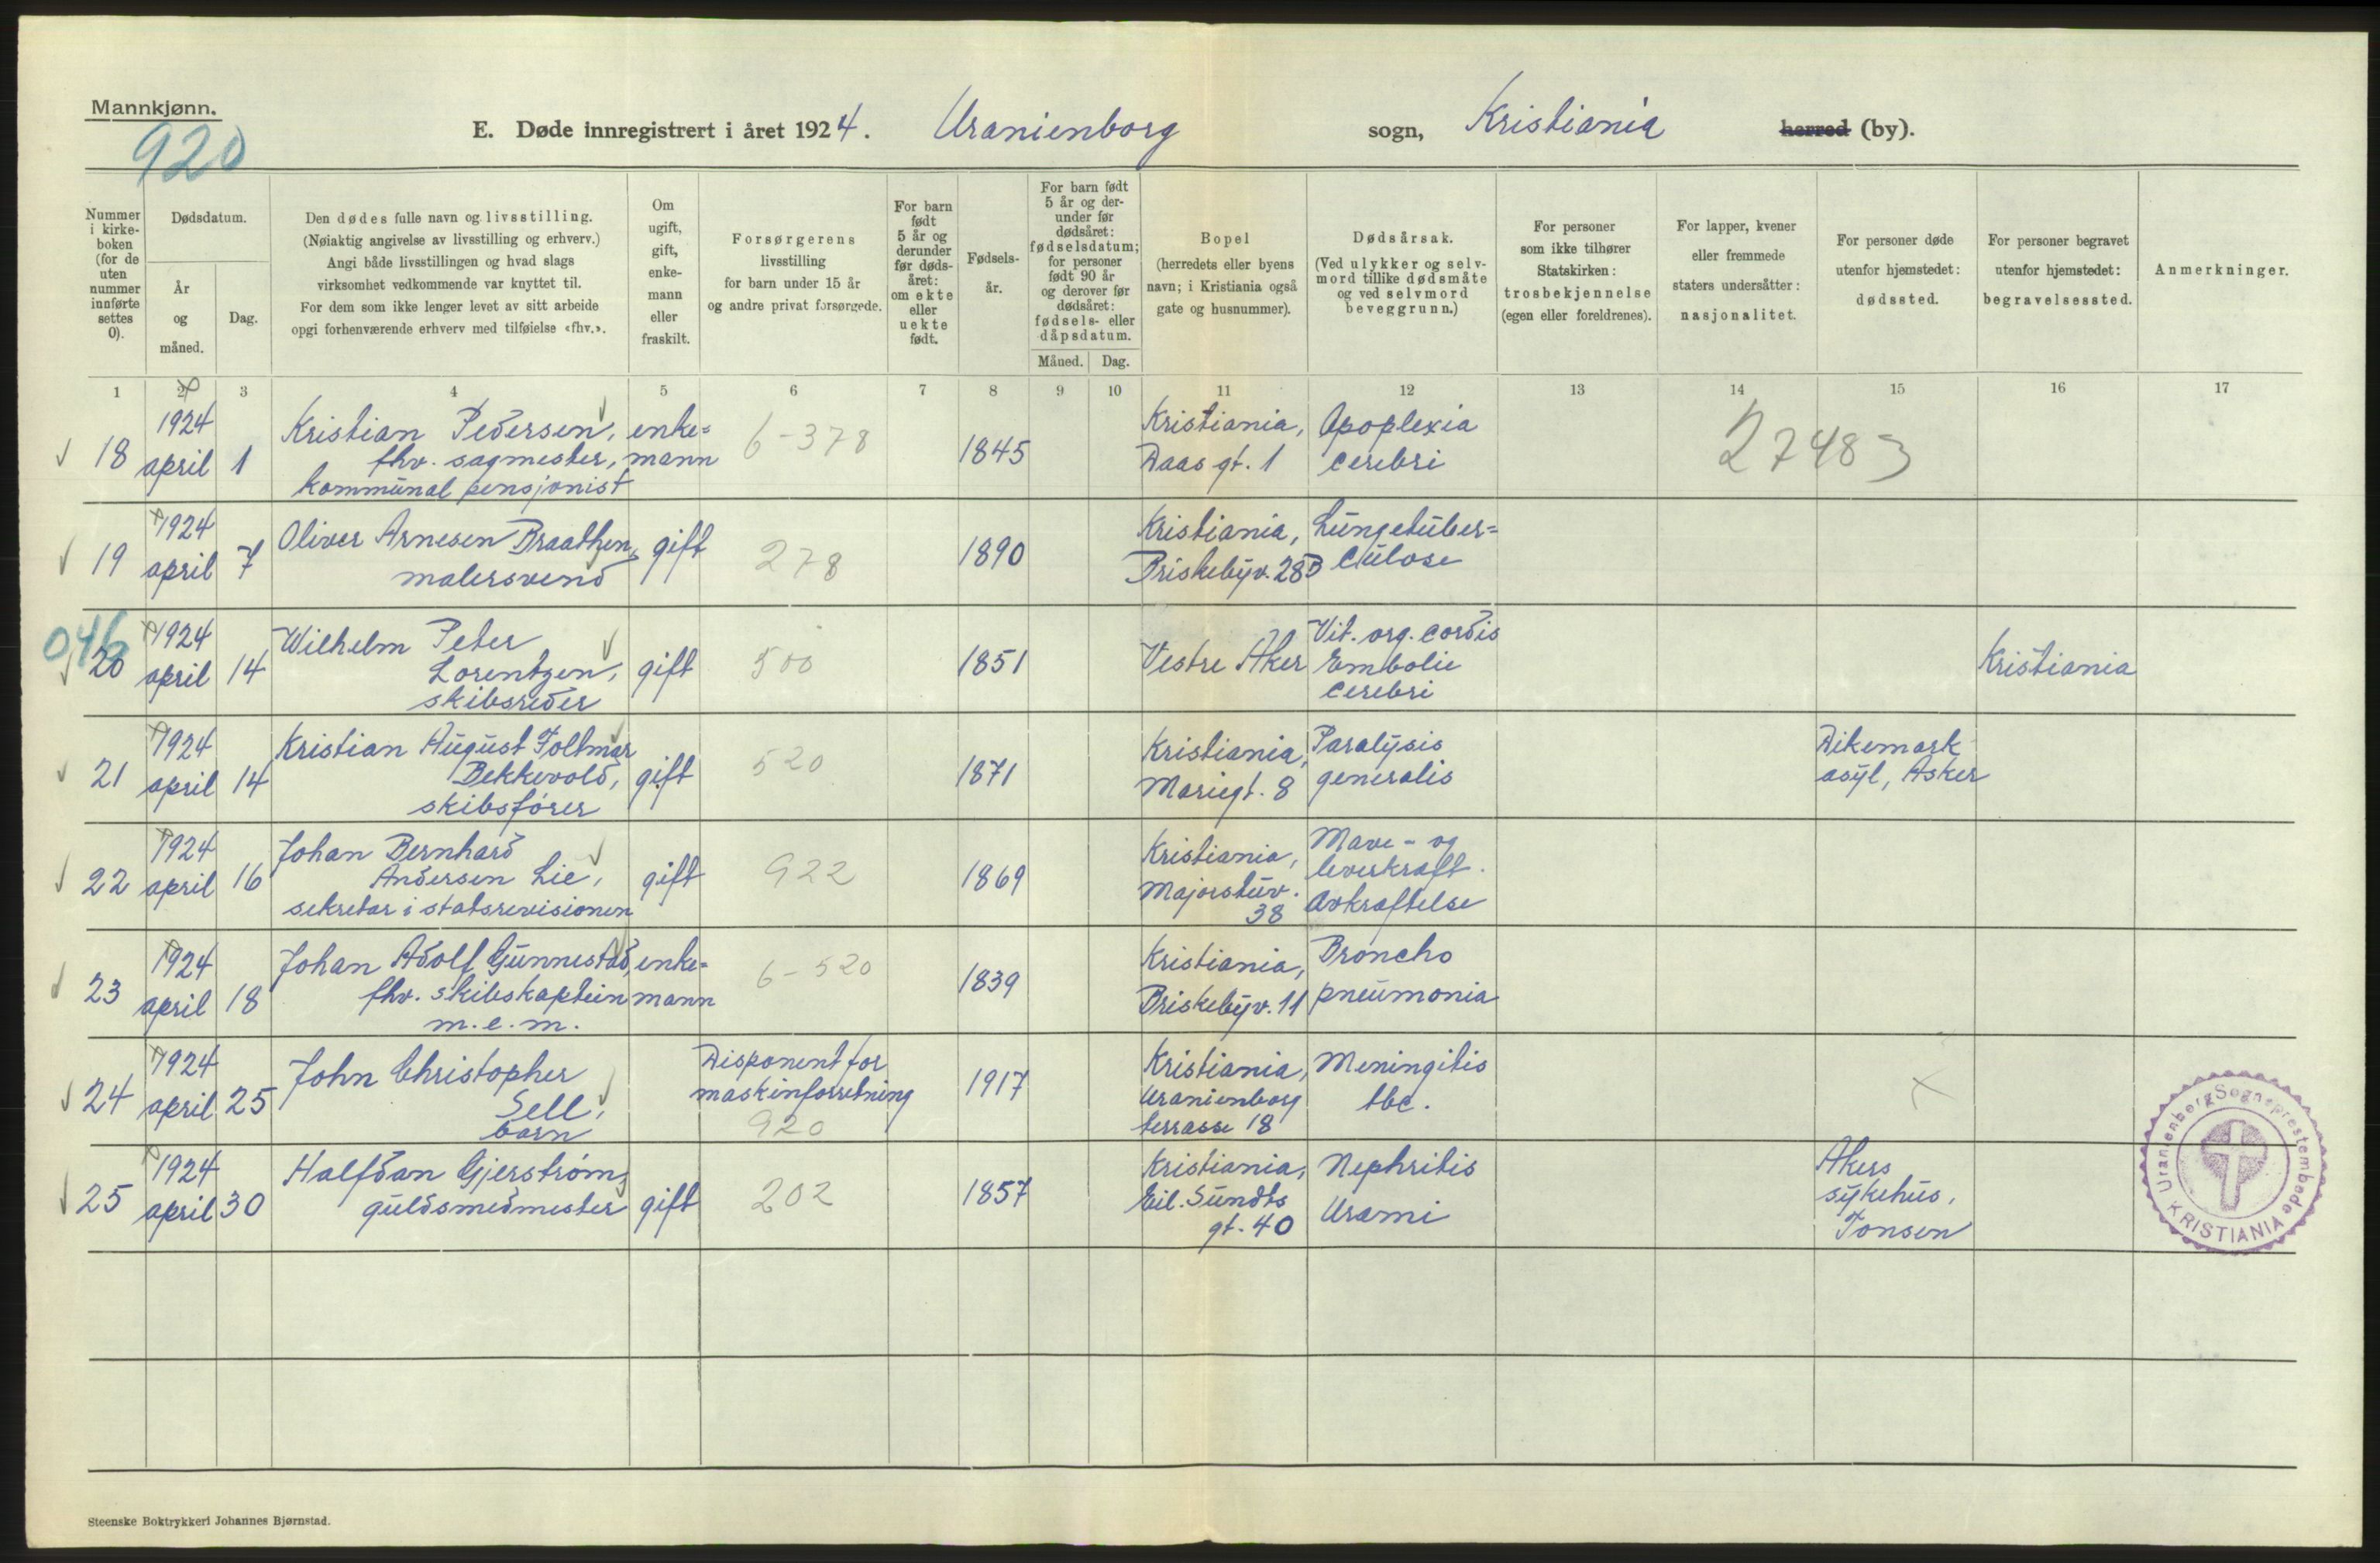 Mannkjønn.
920
E. Døde innregistrert i året 1924. Uranienborg sogn, Kristiania herred (by).
Nummer i kirke-boken (for de uten nummer innførte settes 0).
Dødsdatum.
År og måned.
Dag.
Den dødes fulle navn og livsstilling.
(Nøiaktig angivelse av livsstilling og erhverv.)
Angi både livsstillingen og hvad slags
virksomhet vedkommende var knyttet til.
For dem som ikke lenger levet av sitt arbeide
opgi forhenværende erhverv med tilføielse «fhv.».
Om ugift, gift, enke-mann eller fraskilt.
Forsørgerens
livsstilling
for barn under 15 år
og andre privat forsørgede.
For barn født 5 år og derunder før døds-året: om ekte eller uekte født.
Fødsels-år.
For barn født 5 år og der-under før dødsåret: fødselsdatum; for personer født 90 år og derover før dødsåret: fødsels- eller dåpsdatum.
Måned. Dag.
Bopel
(herredets eller byens
navn; i Kristiania også
gate og husnummer).
Dødsårsak.
(Ved ulykker og selv-
mord tillike dødsmåte
og ved selvmord
beveggrunn.)
For personer
som ikke tilhører
Statskirken:
trosbekjennelse
(egen eller foreldrenes).
For lapper, kvener
eller fremmede
staters undersåtter:
nasjonalitet.
For personer døde
utenfor hjemstedet:
dødssted.
For personer begravet
utenfor hjemstedet:
begravelsessted.
Anmerkninger.
1 2 3 4 5 6 7 8 9 10 11 12 13 14 15 16 17
18 1924 april 1 Kristian Pedersen, fhv. sagmester, kommunal pensjonist enke=mann 6-378 1845 Kristiania, Daas gt. 1 Apoplexia cerebri 27483
19 1924 april 7 Oliver Arnesen Braathen, malersvend gift 278 1890 Kristiania, Briskebyv. 28B Lungetuber=culose
046
20 1924 april 14 Wilhelm Peter Lorentzen, skibsreder gift 500 1851 Vestre Aker Vit. org. cordis Embolie cerebri Kristiania
21 1924 april 14 Kristian August Foltmar Bekkevold, skibsfører gift 520 1871 Kristiania, Mariegt. 8 Paralysis generalis Dikemark asyl, Asker
22 1924 april 16 Johan Bernhard Andersen Lie, sekretær i statsrevisionen gift 922 1869 Kristiania, Majorstuv. 38 Mave- og leverkræft. Avkræftelse
23 1924 april 18 Johan Adolf Gunnestad, fhv. skibskaptein m.e.m. enke=mann 6-520 1839 Kristiania, Briskebyv. 11 Broncho pneumonia
24 1924 april 25 John Christopher Sell, barn Disponent for maskinforretning 920 1917 Kristiania, Uranienborg terrasse 18 Meningitis tbc.
25 1924 april 30 Halfdan Gjerstrøm, guldsmedmester gift 202 1857 Kristiania, Eil. Sundts gt. 40 Nephritis Uræmi Akers sykehus, Tonsen
Uranienborg Sogneprestembede
KRISTIANIA
Steenske Boktrykkeri Johannes Bjørnstad.